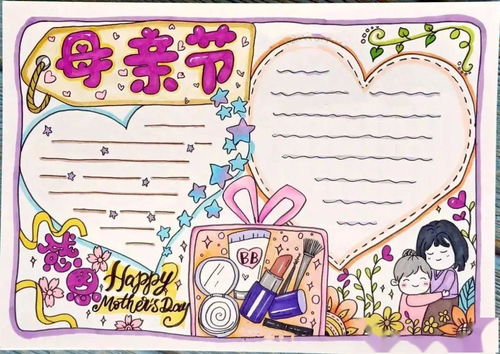 母亲节
BB
感恩
Happy
Mother's Day